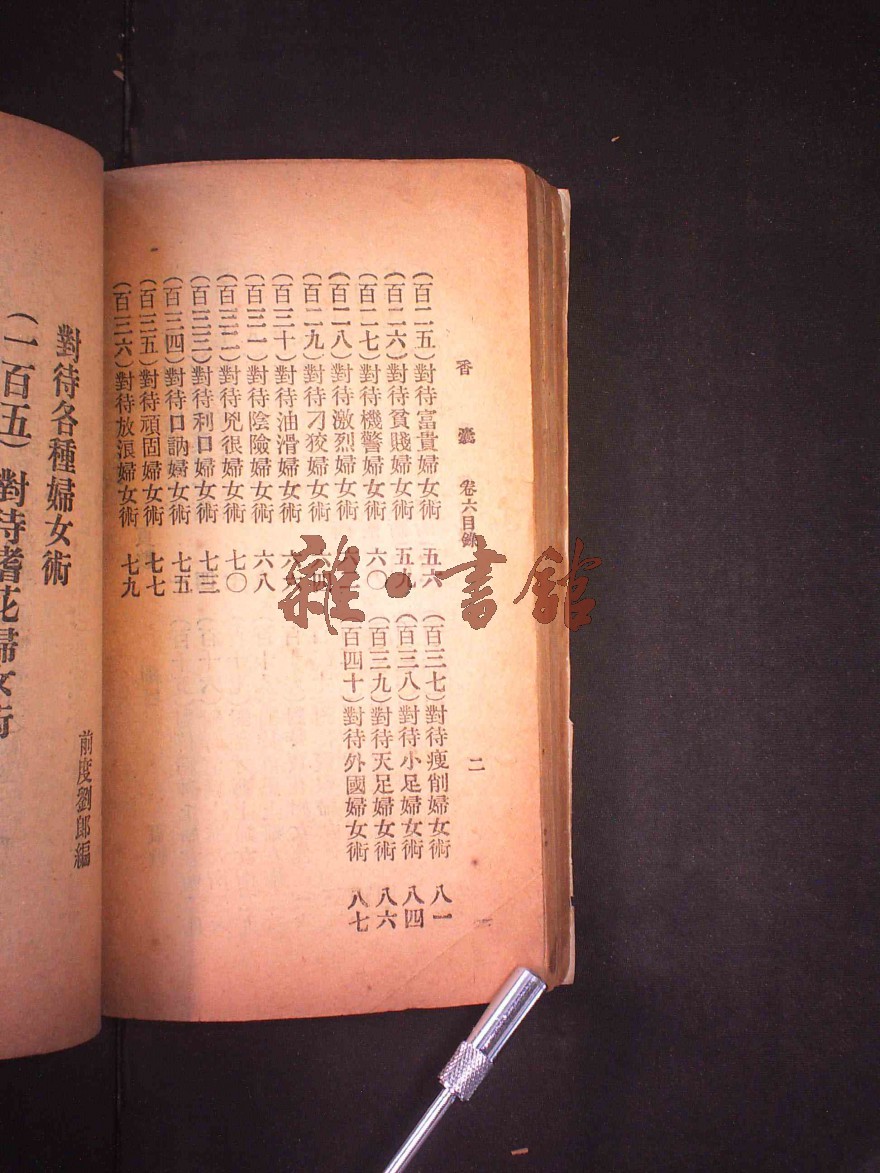 香囊 卷六目錄 二
(百二五)對待富貴婦女術 五六
(百二六)對待貧賤婦女術 五九
(百二七)對待機警婦女術 六〇
(百二八)對待激烈婦女術
(百二九)對待刁狡婦女術
(百三十)對待油滑婦女術
(百三一)對待陰險婦女術 六八
(百三二)對待兇很婦女術 七〇
(百三三)對待利口婦女術 七三
(百三四)對待口訥婦女術 七五
(百三五)對待頑固婦女術 七七
(百三六)對待放浪婦女術 七九
(百三七)對待瘦削婦女術 八一
(百三八)對待小足婦女術 八四
(百三九)對待天足婦女術 八六
(百四十)對待外國婦女術 八七
對待各種婦女術
前度劉郎編
(一百五)對待嗜花婦女術
雜·書館